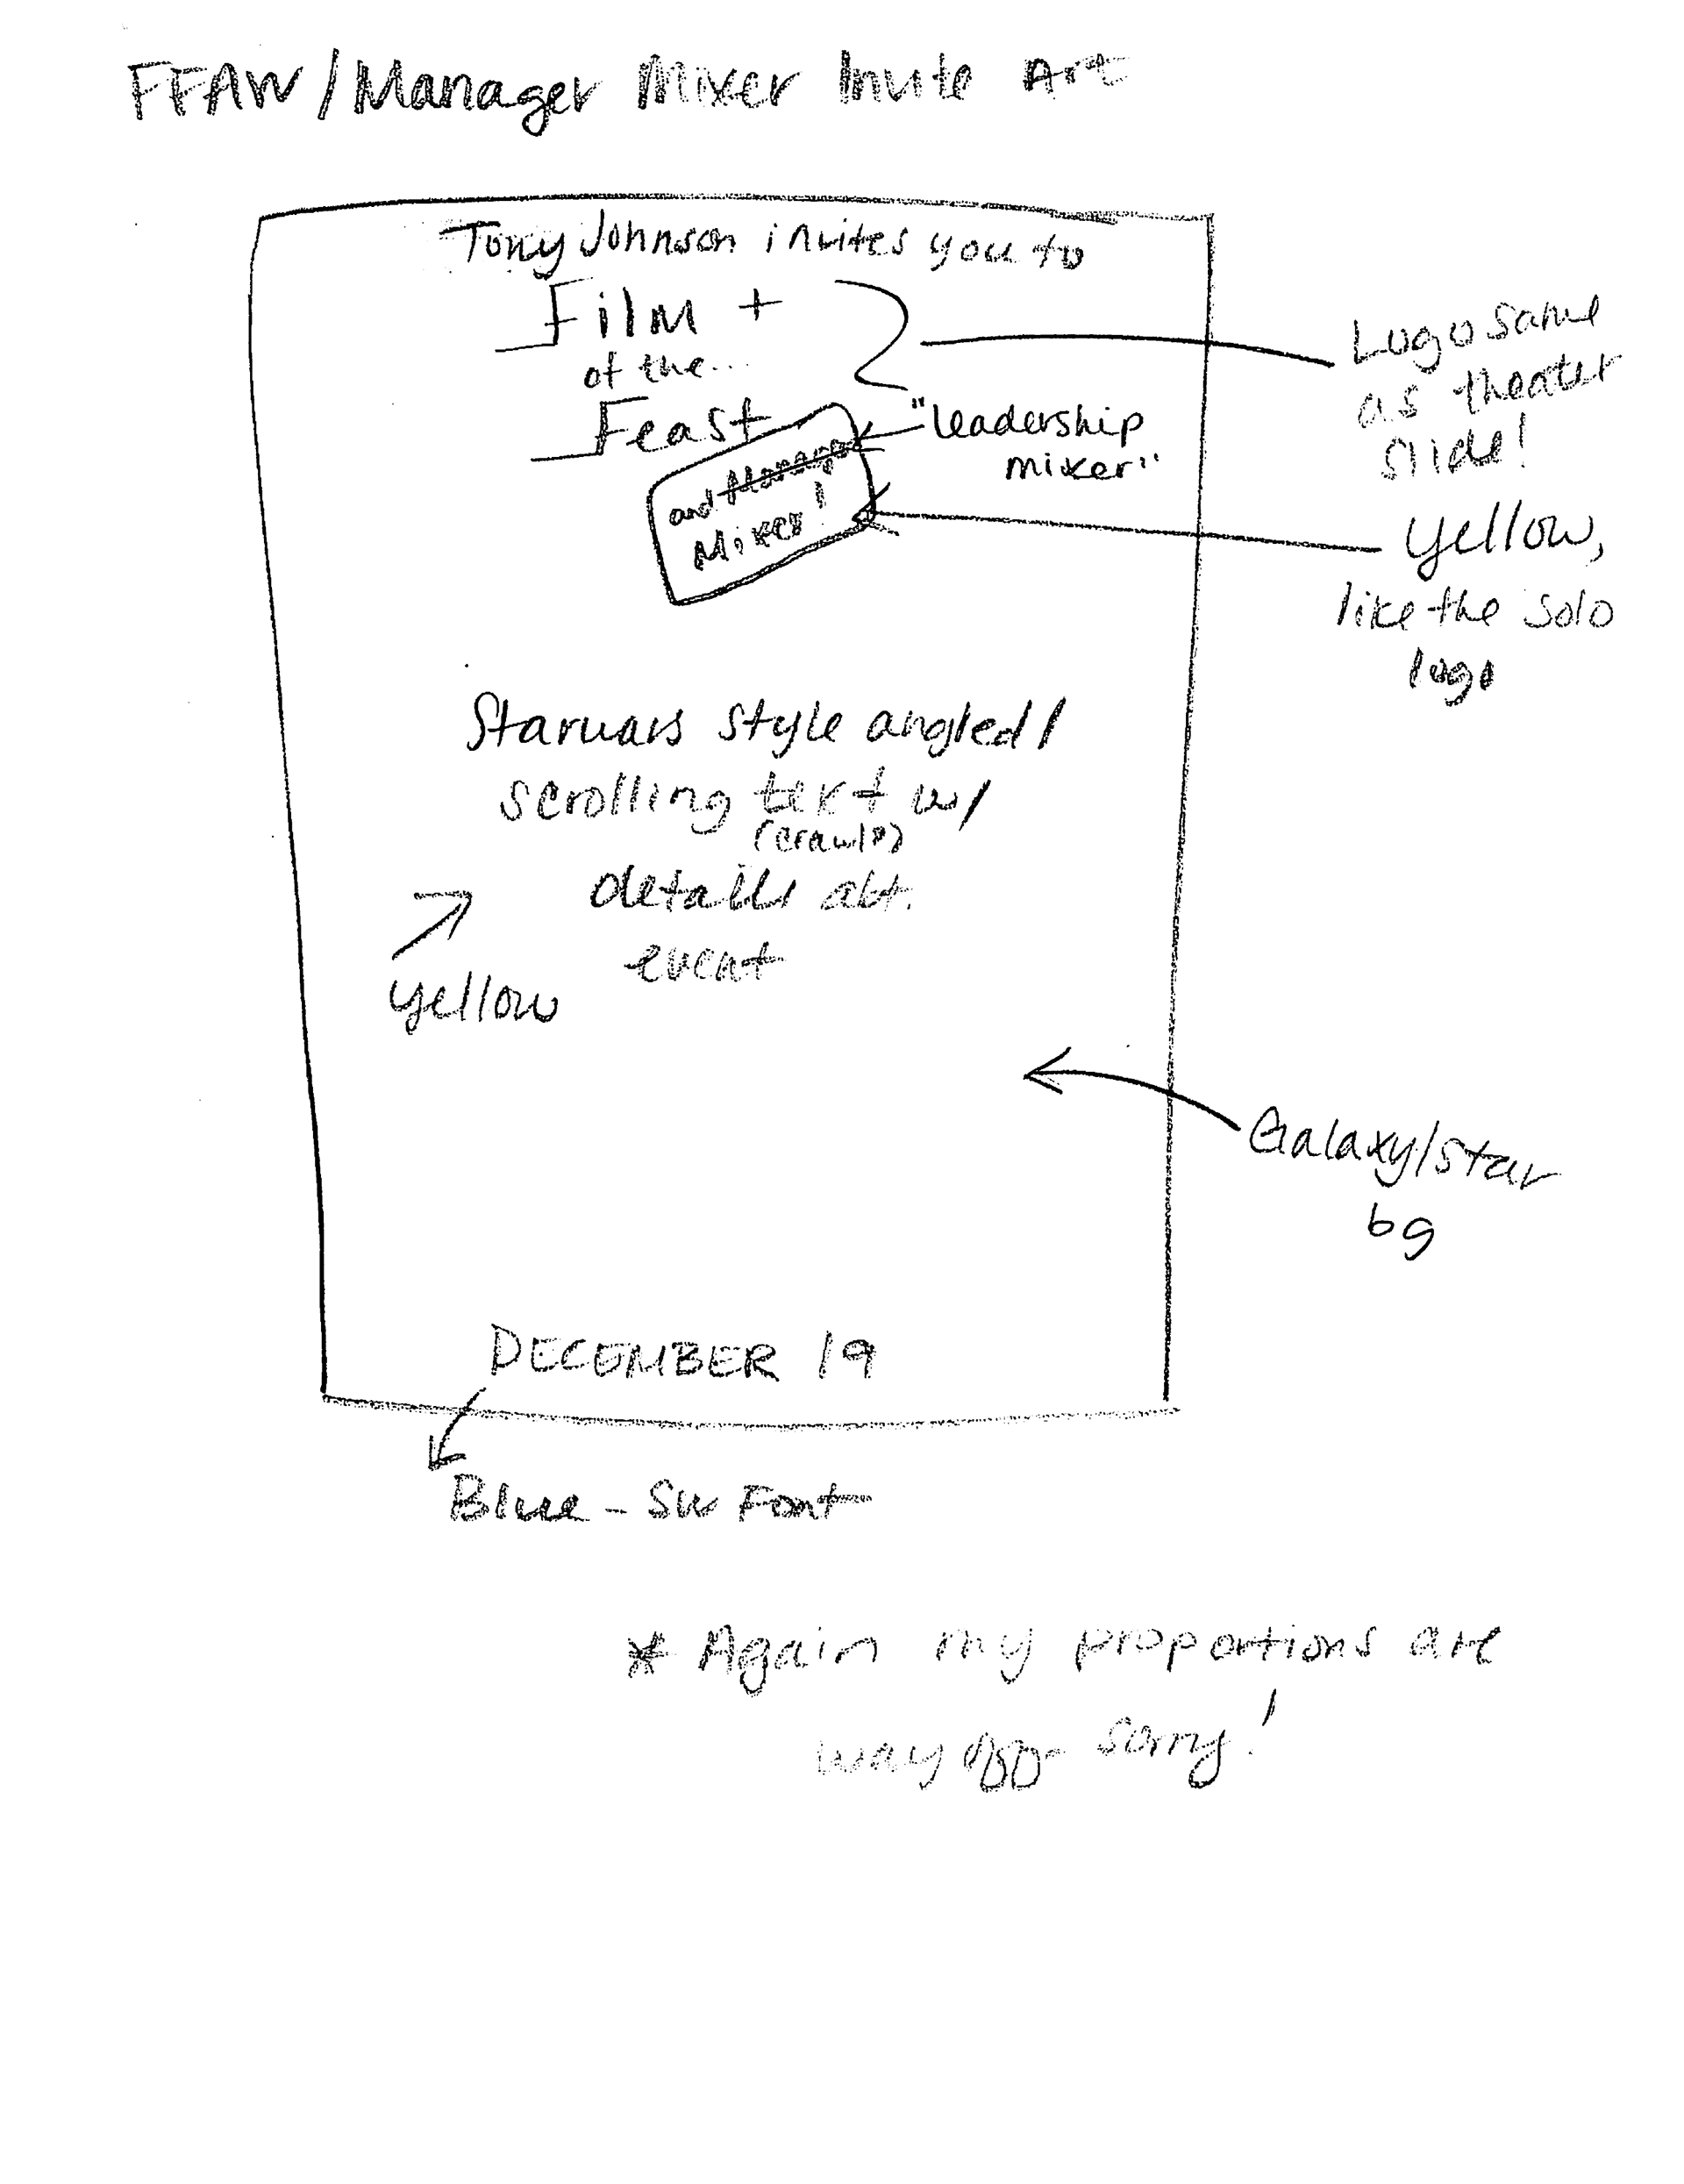 FFAW/Manager Mixer Invite Art
Tony Johnson invites you to
Film +
of the...
Feast
"leadership
mixer"
and Manager
Mixer!
Logo same
as theater
slide!
yellow,
like the solo
logo
Starwars style angled/
scrolling text w/
(crawl?)
details abt.
event
yellow
Galaxy/Star
bg
DECEMBER 19
Blue - SW Font
* Again my proportions are
way off - sorry!